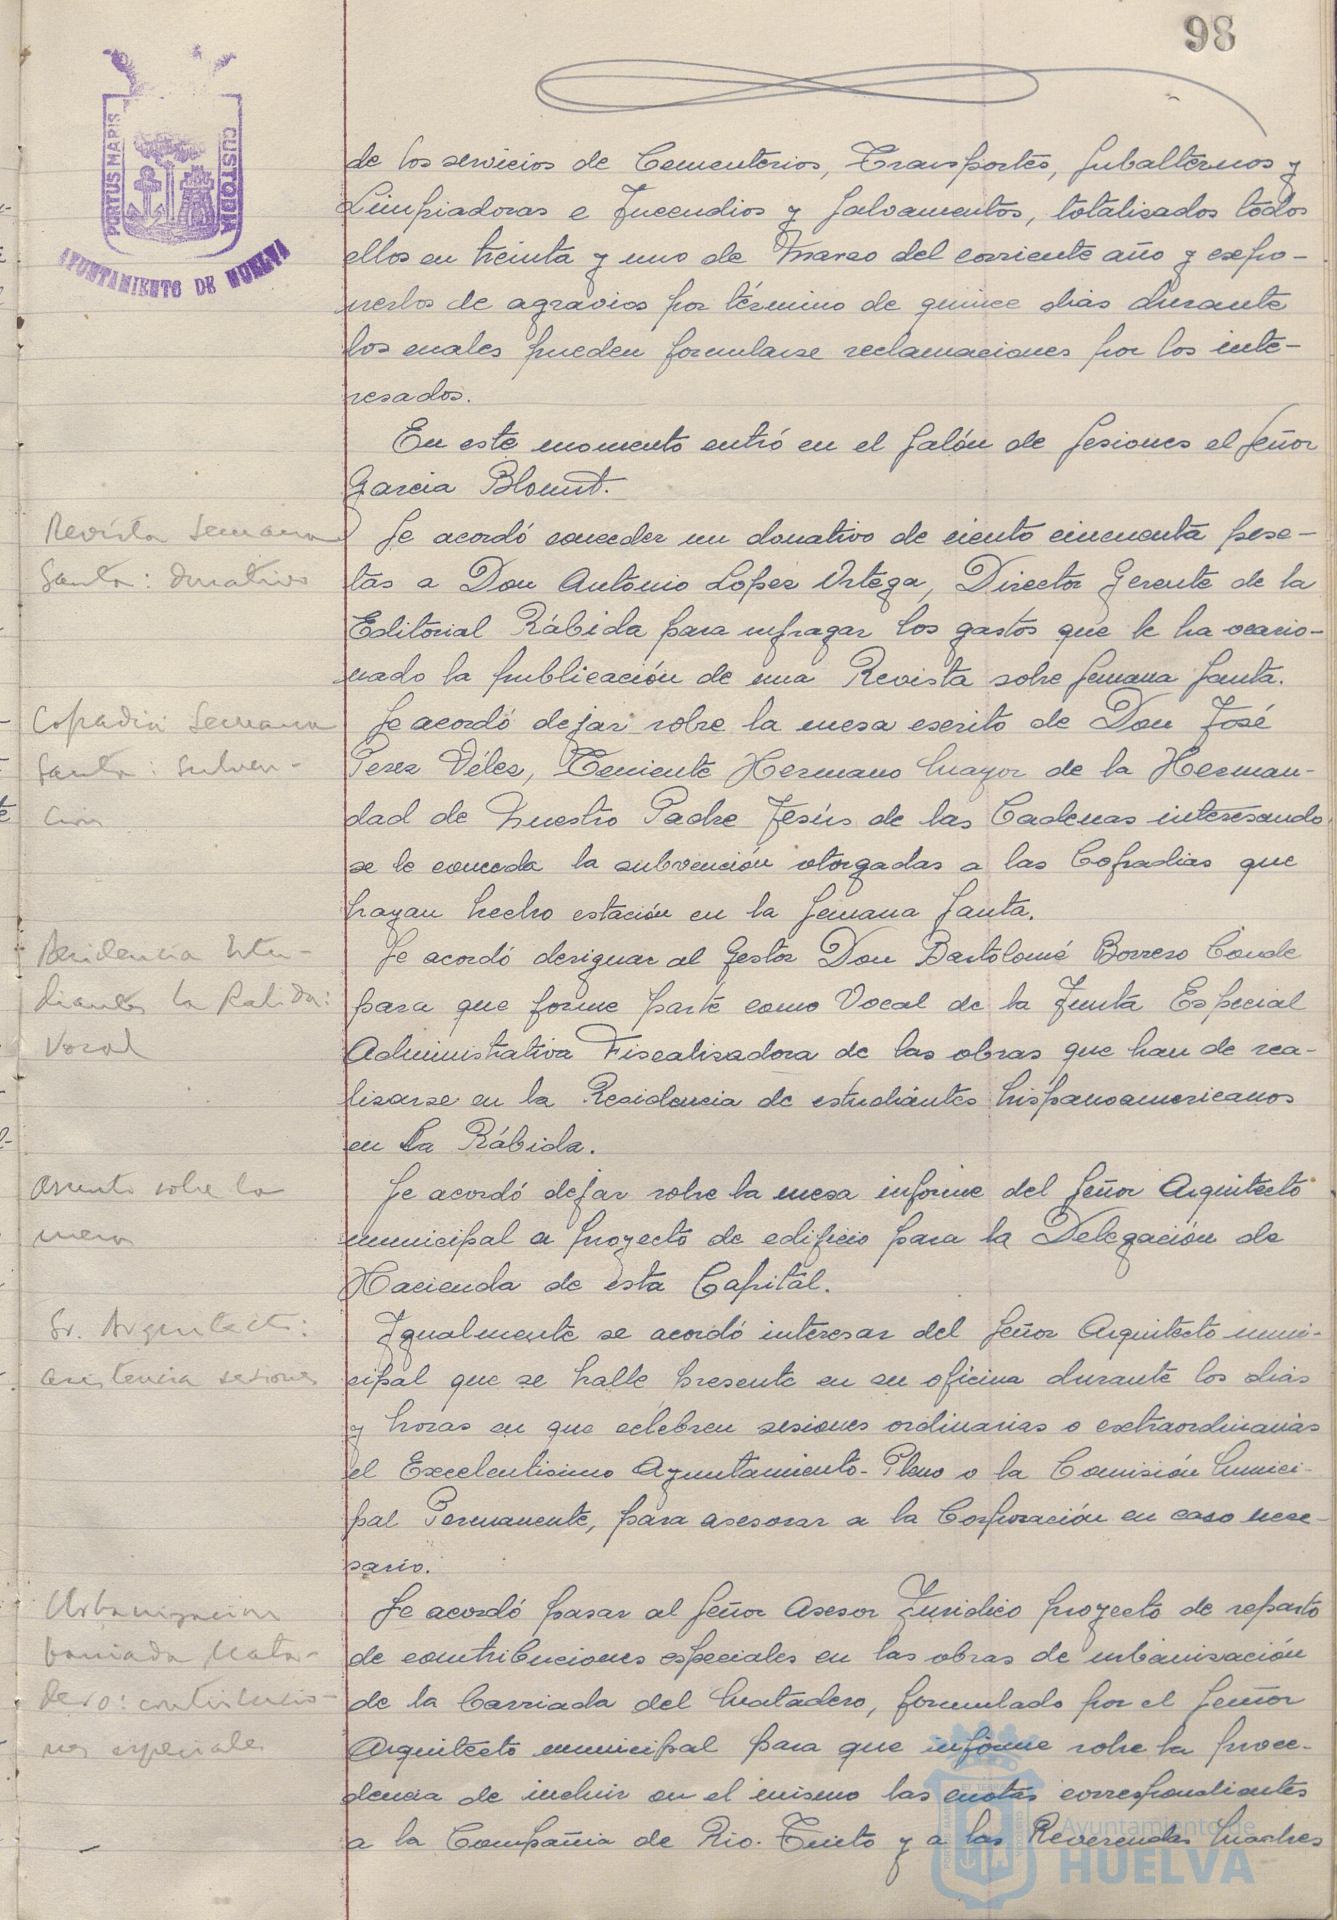 98
PORTUS MARIS CUSTODIA
AYUNTAMIENTO DE HUELVA
de los servicios de Cementerios, Transportes, Subalternos y
Limpiadoras e Incendios y Salvamentos, totalisados todos
ellos en treinta y uno de Marzo del corriente año y expo-
nerlos de agravios por término de quince dias durante
los cuales pueden formularse reclamaciones por los inte-
resados.
En este momento entró en el Salón de Sesiones el Señor
Garcia Blount.
Revista Semana
Santa: donativo
Se acordó conceder un donativo de ciento cincuenta pese-
tas a Don Antonio Lopez Ortega, Director Gerente de la
Editorial Rábida para sufragar los gastos que le ha ocasio-
nado la publicación de una Revista sobre Semana Santa.
Cofradia Semana
Santa: subven-
cion
Se acordó dejar sobre la mesa escrito de Don José
Perez Vélez, Teniente Hermano Mayor de la Herman-
dad de Nuestro Padre Jesús de las Cadenas interesando
se le conceda la subvención otorgadas a las Cofradias que
hayan hecho estación en la Semana Santa.
Residencia Estu-
diantes la Rabida:
Vocal
Se acordó designar al Gestor Don Bartolomé Borrero Conde
para que forme parte como Vocal de la Junta Especial
Administrativa Fiscalisadora de las obras que han de rea-
lisarse en la Residencia de estudiantes hispanoamericanos
en La Rábida.
Asunto sobre la
mesa
Se acordó dejar sobre la mesa informe del Señor Arquitecto
municipal a proyecto de edificio para la Delegación de
Hacienda de esta Capital.
Sr. Arquitecto:
asistencia sesiones
Igualmente se acordó interesar del Señor Arquitecto muni-
cipal que se halle presente en su oficina durante los dias
y horas en que celebren sesiones ordinarias o extraordinarias
el Excelentisimo Ayuntamiento-Pleno o la Comisión Munici-
pal Permanente, para asesorar a la Corporación en caso nece-
sario.
Urbanizacion
barriada Mata-
dero: contribucio-
nes especiales
Se acordó pasar al Señor Asesor Juridico proyecto de reparto
de contribuciones especiales en las obras de urbanisación
de la barriada del Matadero, formulado por el Señor
Arquitecto municipal para que informe sobre la proce-
dencia de incluir en el mismo las cuotas correspondientes
a la Compañia de Rio-Tinto y a las Reverendas Madres
Ayuntamiento de
HUELVA